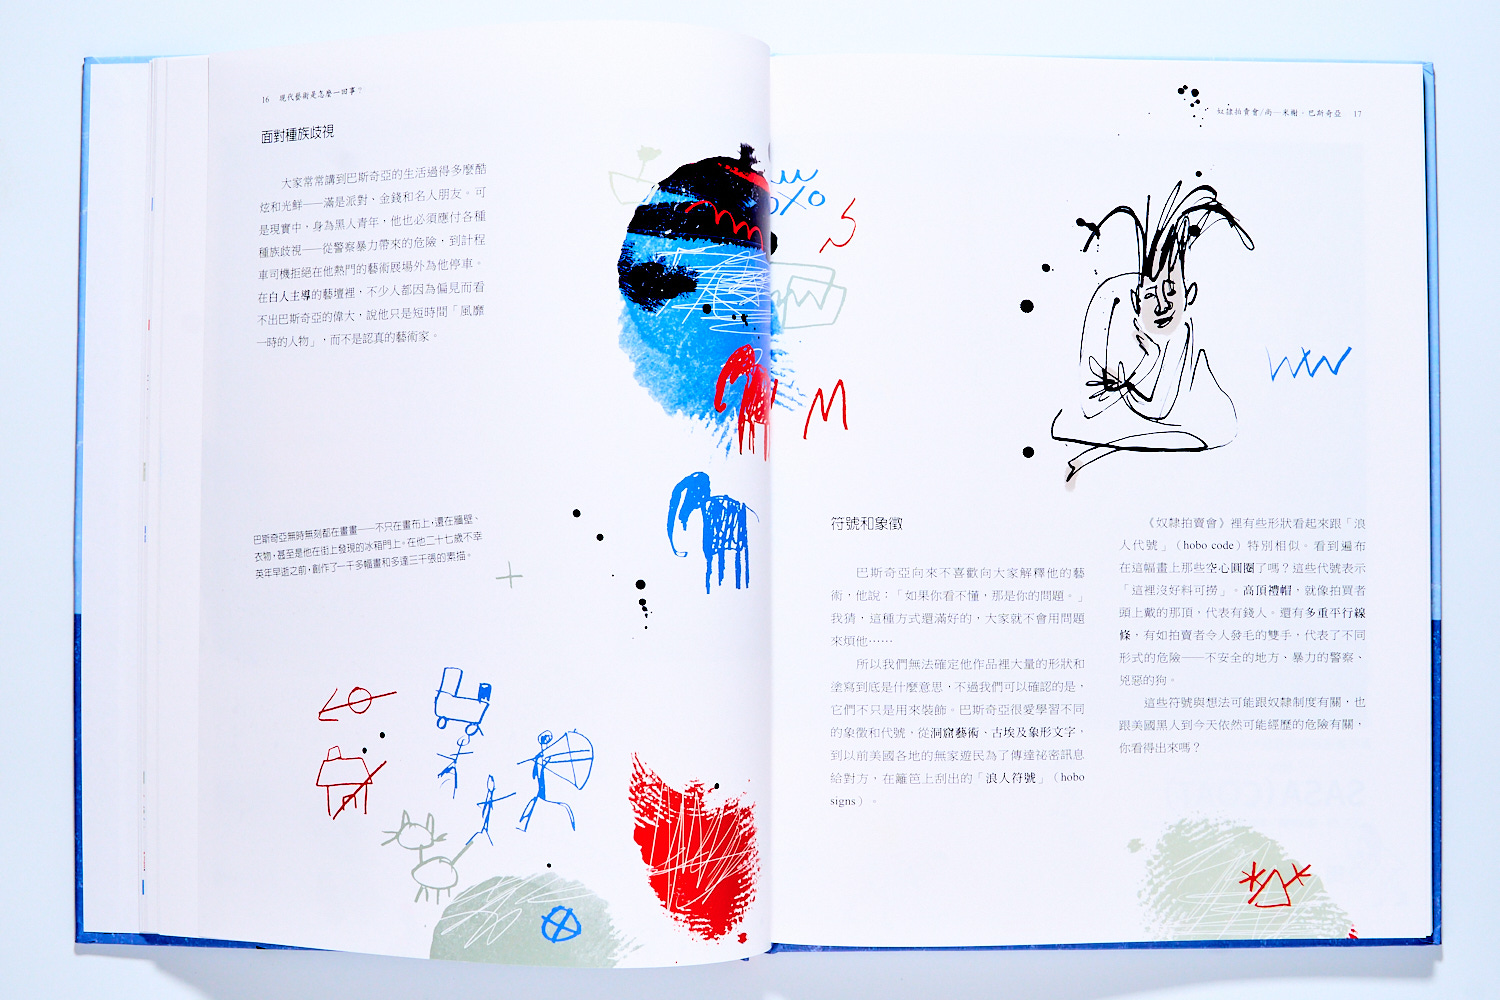 16 現代藝術是怎麼一回事？
面對種族歧視
大家常常講到巴斯奇亞的生活過得多麼酷
炫和光鮮——滿是派對、金錢和名人朋友。可
是現實中，身為黑人青年，他也必須應付各種
種族歧視——從警察暴力帶來的危險，到計程
車司機拒絕在他熱門的藝術展場外為他停車。
在白人主導的藝壇裡，不少人都因為偏見而看
不出巴斯奇亞的偉大，說他只是短時間「風靡
一時的人物」，而不是認真的藝術家。
巴斯奇亞無時無刻都在畫畫——不只在畫布上，還在牆壁、
衣物，甚至是他在街上發現的冰箱門上。在他二十七歲不幸
英年早逝之前，創作了一千多幅畫和多達三千張的素描。
奴隸拍賣會/尚—米榭．巴斯奇亞 17
符號和象徵
巴斯奇亞向來不喜歡向大家解釋他的藝
術，他說：「如果你看不懂，那是你的問題。」
我猜，這種方式還滿好的，大家就不會用問題
來煩他……
所以我們無法確定他作品裡大量的形狀和
塗寫到底是什麼意思，不過我們可以確認的是，
它們不只是用來裝飾。巴斯奇亞很愛學習不同
的象徵和代號，從洞窟藝術、古埃及象形文字，
到以前美國各地的無家遊民為了傳達祕密訊息
給對方，在籬笆上刮出的「浪人符號」（hobo
signs）。
《奴隸拍賣會》裡有些形狀看起來跟「浪
人代號」（hobo code）特別相似。看到遍布
在這幅畫上那些空心圓圈了嗎？這些代號表示
「這裡沒好料可撈」。高頂禮帽，就像拍買者
頭上戴的那頂，代表有錢人。還有多重平行線
條，有如拍賣者令人發毛的雙手，代表了不同
形式的危險——不安全的地方、暴力的警察、
兇惡的狗。
這些符號與想法可能跟奴隸制度有關，也
跟美國黑人到今天依然可能經歷的危險有關，
你看得出來嗎？